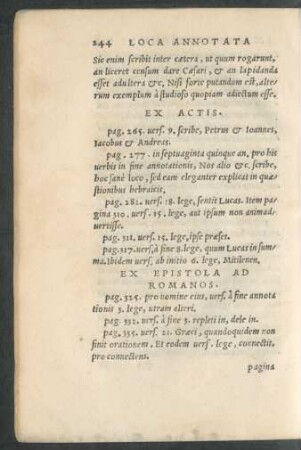 244 LOCA ANNOTATA
Sic enim scribis inter cætera, ut quum rogarunt,
an liceret censum dare Cæsari, & an lapidanda
esset adultera &c, Nisi forte putandum est, alte-
rum exemplum à studioso quopiam adiectum esse.
EX ACTIS.
pag. 265. uers. 9. scribe, Petrus & Ioannes,
Iacobus & Andreas.
pag. 277. in septuaginta quinque an, pro his
uerbis in fine annotationis, Nos alio &c. scribe,
hoc sanè loco, sed eam eleganter explicat in quæ-
stionibus hebraicis,
pag. 282. uers. 18. lege, sentit Lucas. Item pa-
gina 310. uers. 15. lege, aut ipsum non animad-
uertisse.
pag. 311. uers. 15. lege, ipse præses.
pag. 317. uers. à fine 8. lege, quum Lucas in sum-
ma. Ibidem uers. ab initio 6. lege, Mitilenen.
EX EPISTOLA AD
ROMANOS.
pag. 325. pro nomine eius, uers. à fine annota
tionis 3. lege, utram alteri.
pag. 332. uers. à fine 3. repleti in, dele in.
pag. 335. uers. 21. Græci, quandoquidem non
finit orationem. Et eodem uers. lege, connectit,
pro connectens.
pagina